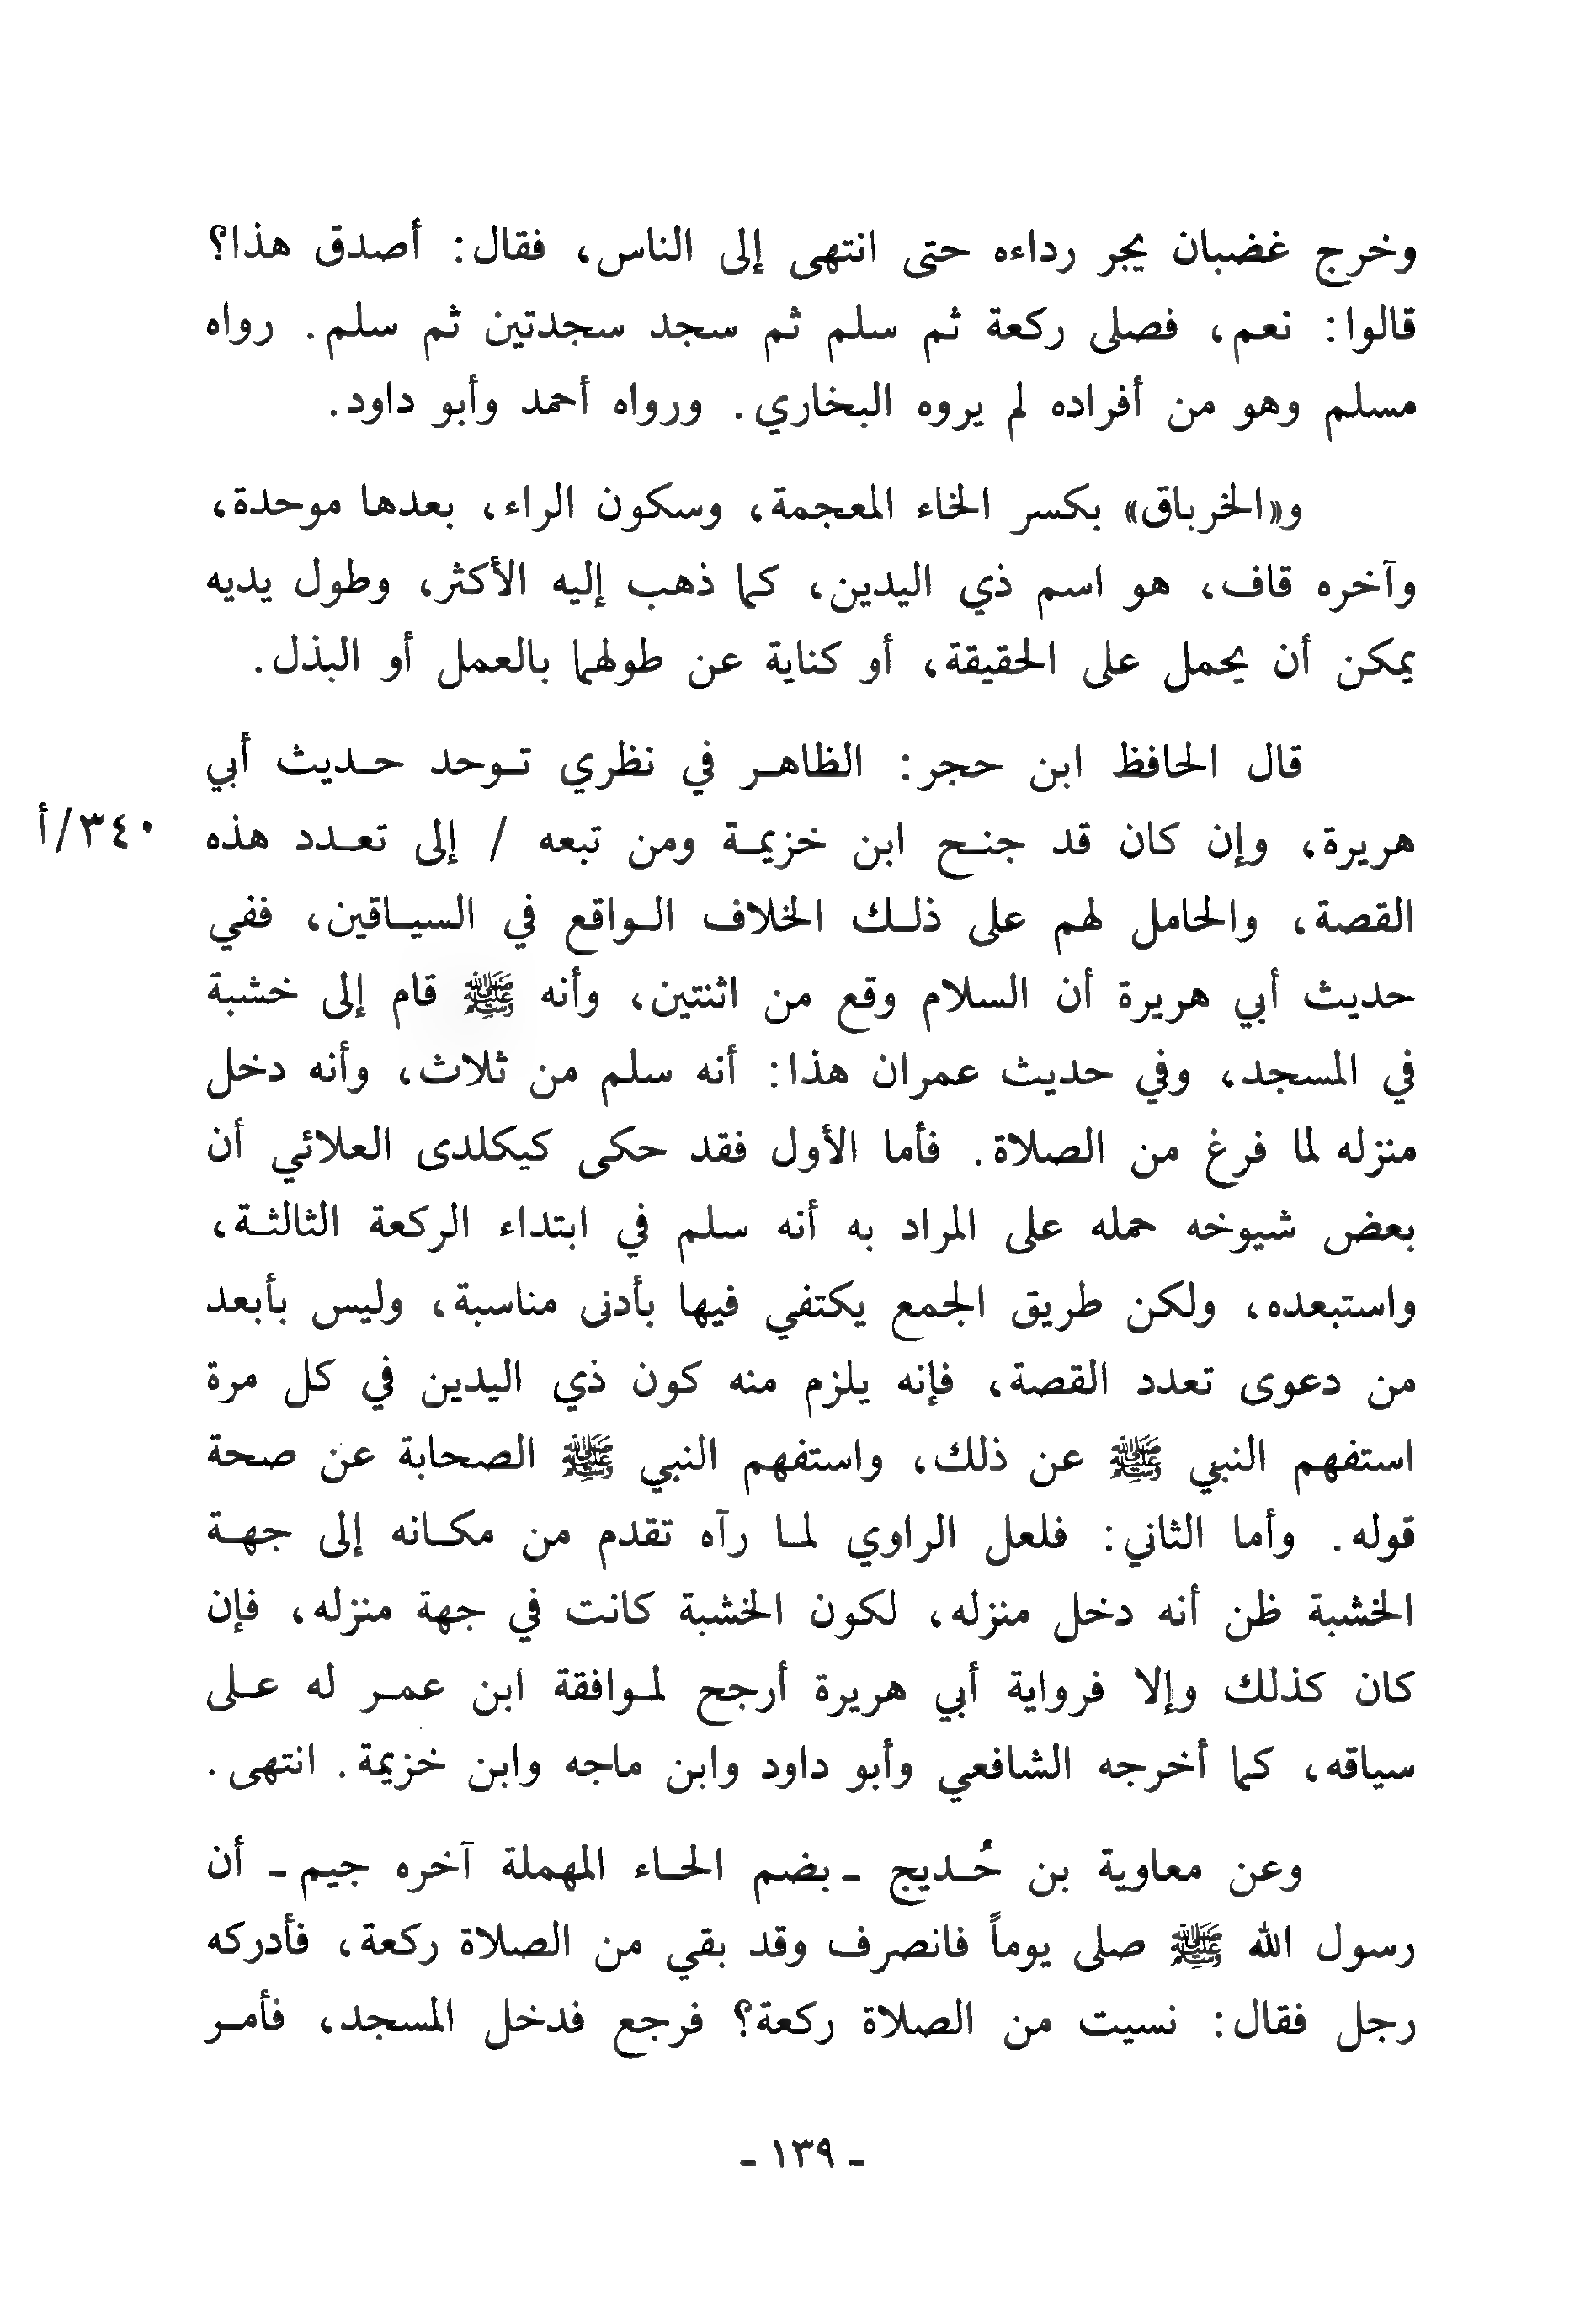 وخرج غضبان يجر رداءه حتى انتهى إلى الناس، فقال: أصدق هذا؟
قالوا: نعم، فصلى ركعة ثم سلم ثم سجد سجدتين ثم سلم. رواه
مسلم وهو من أفراده لم يروه البخاري. ورواه أحمد وأبو داود.
و«الخرباق» بكسر الخاء المعجمة، وسكون الراء، بعدها موحدة،
وآخره قاف، هو اسم ذي اليدين، كما ذهب إليه الأكثر، وطول يديه
يمكن أن يحمل على الحقيقة، أو كناية عن طولهما بالعمل أو البذل.
قال الحافظ ابن حجر: الظاهر في نظري توحد حديث أبي
هريرة، وإن كان قد جنح ابن خزيمة ومن تبعه / إلى تعدد هذه
٣٤٠/أ
القصة، والحامل لهم على ذلك الخلاف الواقع في السياقين، ففي
حديث أبي هريرة أن السلام وقع من اثنتين، وأنه ﷺ قام إلى خشبة
في المسجد، وفي حديث عمران هذا: أنه سلم من ثلاث، وأنه دخل
منزله لما فرغ من الصلاة. فأما الأول فقد حكى كيكلدى العلائي أن
بعض شيوخه حمله على المراد به أنه سلم في ابتداء الركعة الثالثة،
واستبعده، ولكن طريق الجمع يكتفي فيها بأدنى مناسبة، وليس بأبعد
من دعوى تعدد القصة، فإنه يلزم منه كون ذي اليدين في كل مرة
استفهم النبي ﷺ عن ذلك، واستفهم النبي ﷺ الصحابة عن صحة
قوله. وأما الثاني: فلعل الراوي لما رآه تقدم من مكانه إلى جهة
الخشبة ظن أنه دخل منزله، لكون الخشبة كانت في جهة منزله، فإن
كان كذلك وإلا فرواية أبي هريرة أرجح لموافقة ابن عمر له على
سياقه، كما أخرجه الشافعي وأبو داود وابن ماجه وابن خزيمة. انتهى.
وعن معاوية بن حُديج ـ بضم الحاء المهملة آخره جيم ـ أن
رسول الله ﷺ صلى يوماً فانصرف وقد بقي من الصلاة ركعة، فأدركه
رجل فقال: نسيت من الصلاة ركعة؟ فرجع فدخل المسجد، فأمر
ـ ١٣٩ ـ